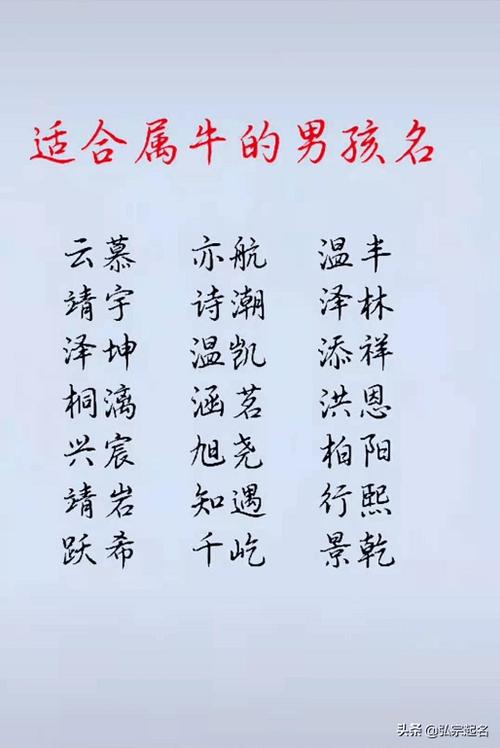 适合属牛的男孩名
云慕 亦航 温丰
靖宇 诗潮 泽林
泽坤 温凯 添祥
桐漓 涵茗 洪恩
兴宸 旭尧 柏阳
靖岩 知遇 行熙
跃希 千屹 景乾
头条 @弘宗起名